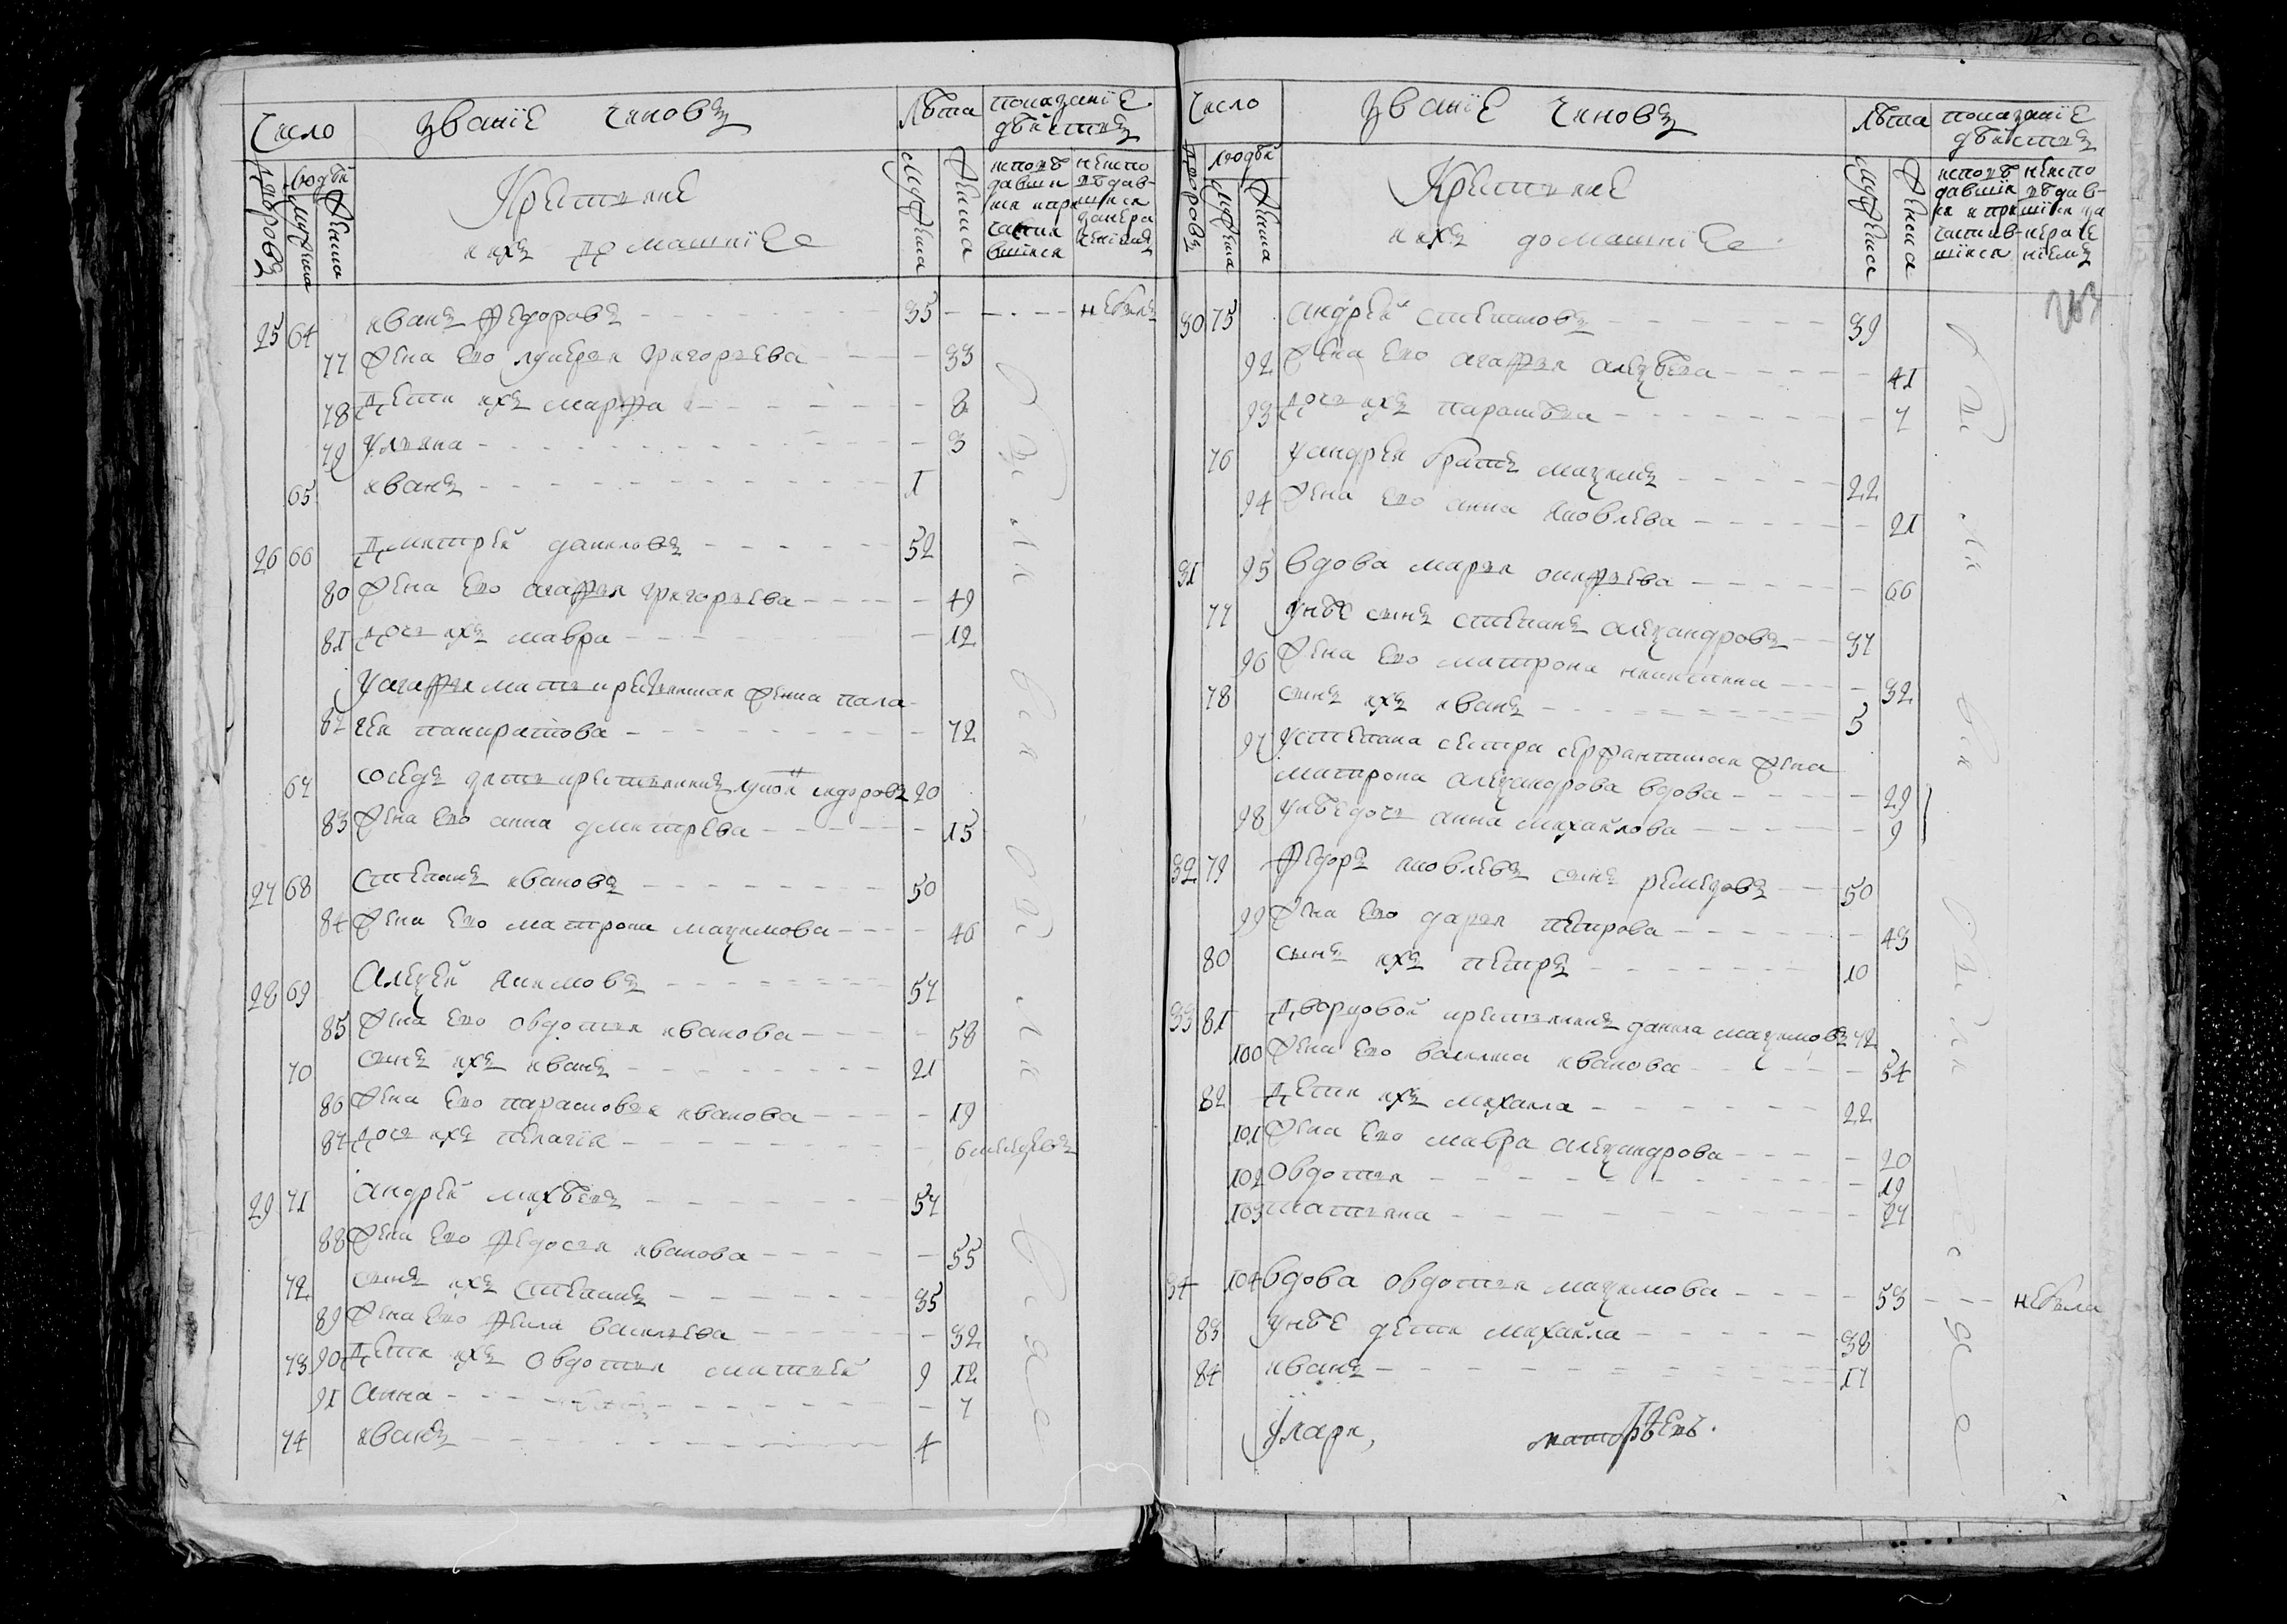 Число званїе чиновъ лѣта показанїе
дѣйствъ
дворовъ людѣй мужеска женска Крестьяне
и ихъ домашнїе мужеска женска исповѣ неиспо
давши вѣдав-
шиися
вшїися
25 64 иванъ федоровъ 35 небылъ
77 жена ево лукерья григорьева 33
78 дети ихъ марфа 8
79 ульяна 3
65 иванъ 1
26 66 дмитрей даниловъ 52
80 жена ево агафья григорьева 49
81 дочь ихъ мавра 12
у агафьи мать крестьянская женка пала
82 гея панкратова 72
67 соседъ зять крестьянинъ сидоровъ 20
83 жена ево анна дмитрева 15
27 68 степанъ ивановъ 50
84 жена ево матрона мазимова 46
28 69 Алеѯей якимовъ 57
85 жена ево овдотья иванова 58
70 сынъ ихъ иванъ 21
86 жена ево парасковья иванова 19
87 дочь ихъ пелагїя 6 месецевъ
29 71 андрей михѣевъ 57
88 жена ево федосья иванова 55
72 сынъ ихъ степанъ 35
89 жена ево фекла васильева 32
73 90 дети ихъ овдотья матвей 9 12
91 анна 7
74 иванъ 4
Число званїе чиновъ лѣта показанїе
дѣйствъ
дворовъ людѣй мужеска женска Крестьяне
и ихъ домашнїе мужеска женска
263
30 75 андрей степановъ 39
92 жена ево агафья алеѯѣева 41
93 дочь ихъ парасковья 7
76 у андрея братъ маѯимъ 22
94 жена ево анна яковлева 21
31 95 вдова марья
66
77 у нѣе сынъ степанъ алеѯандровъ 37
96 жена ево матрона никитина 32
78 сынъ ихъ иванъ 5
97 у степана сестра сержантская жена
матрона алеѯандрова вдова 29
98 у нѣе дочь анна михайлова 9
32 79 федоръ яковлевъ сынъ ремезовъ 50
99 жена ево дарья петрова 43
80 сынъ ихъ петръ 10
33 81 дворцовой крестьянинъ данила маѯимовъ 72
100 жена ево василиса иванова 54
82 дети ихъ михаила 22
101 жена ево мавра алеѯандрова 20
102 овдотья 19
103 татьяна 27
34 104 вдова овдотья маѯимова 53 небыла
83 у нѣе дети михайла 38
84 иванъ 17